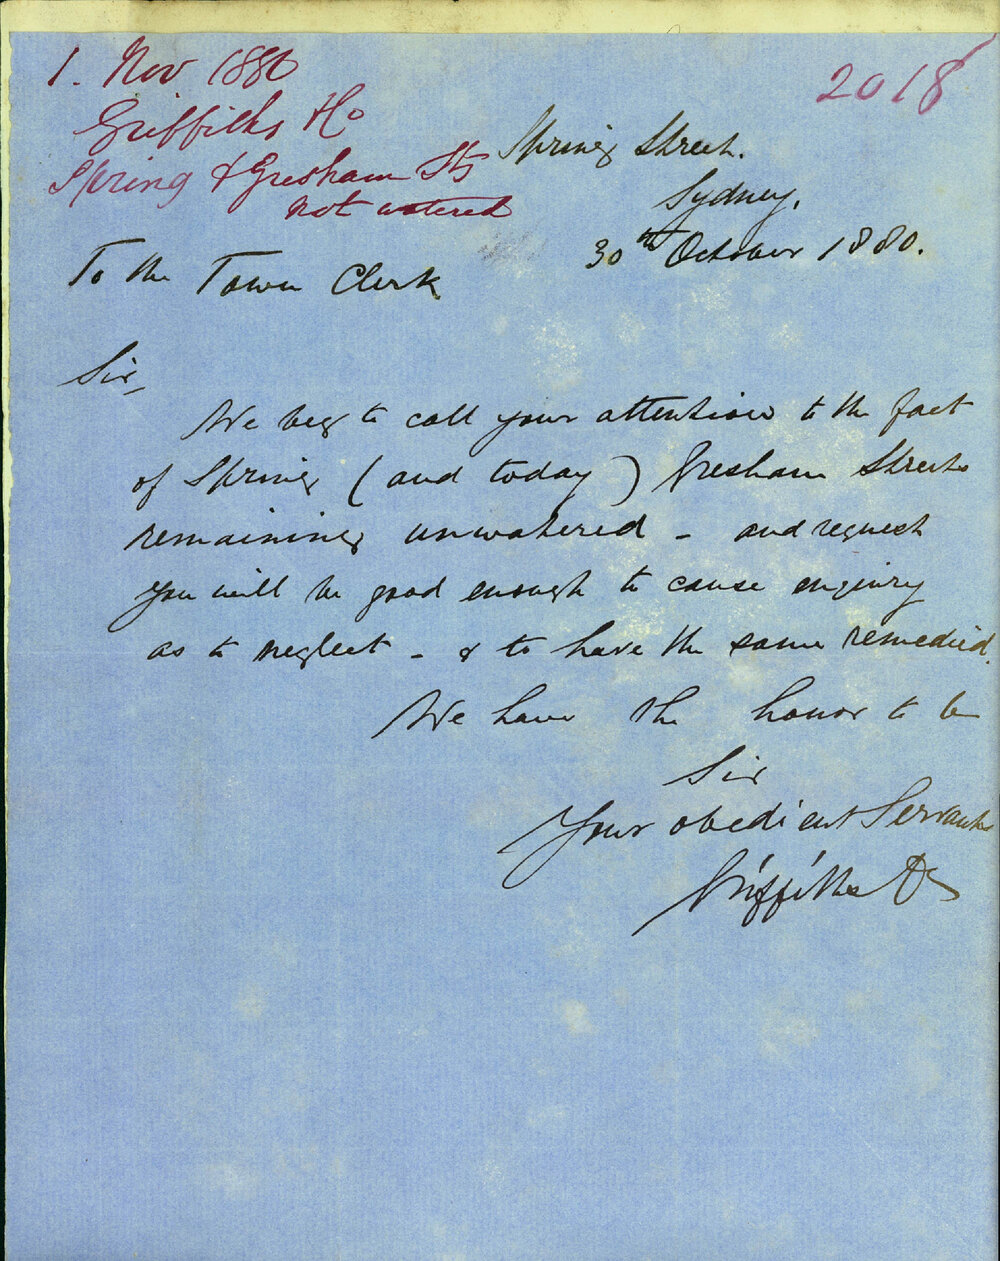 1. Nov 1880
Griffiths Ho
Spring & Gresham Sts
not watered
2018
Spring Street.
Sydney.
30th October 1880.
To the Town Clerk
Sir,
We beg to call your attention to the fact
of Spring (and today) Gresham Streets
remaining unwatered - and request
you will be good enough to cause enquiry
as to neglect - & to have the same remedied.
We have the honor to be
Sir
Your obedient Servants
Griffiths